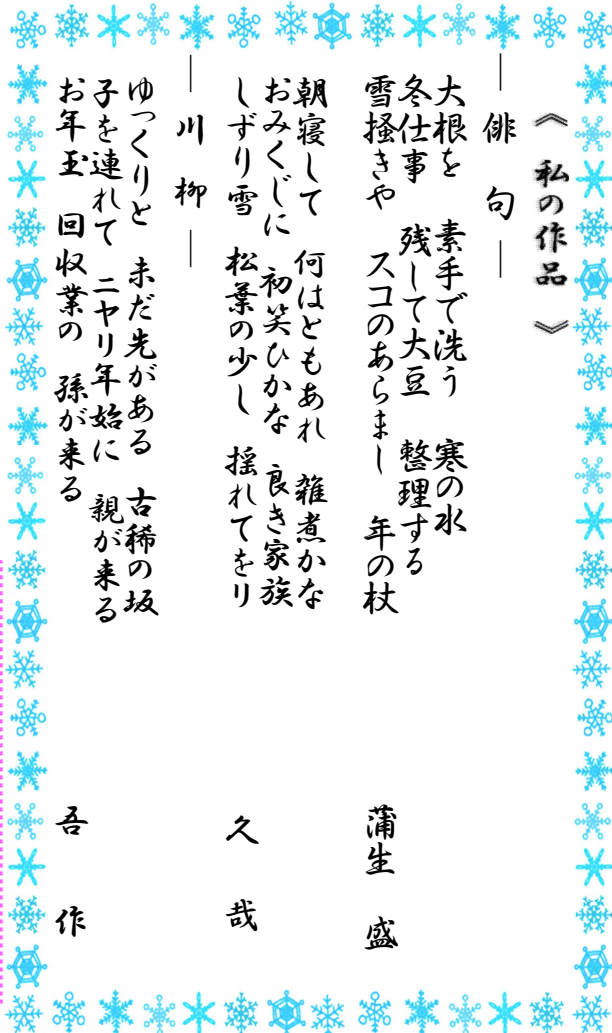 《 私の作品 》
― 俳 句 ―
大根を 素手で洗う 寒の水
冬仕事 残して大豆 整理する
雪掻きや スコのあらまし 年の杖
蒲生 盛
朝寝して 何はともあれ 雑煮かな
おみくじに 初笑ひかな 良き家族
しずり雪 松葉の少し 揺れてをり
久 哉
― 川 柳 ―
ゆっくりと 未だ先がある 古稀の坂
子を連れて ニヤリ年始に 親が来る
お年玉 回収業の 孫が来る
吾 作